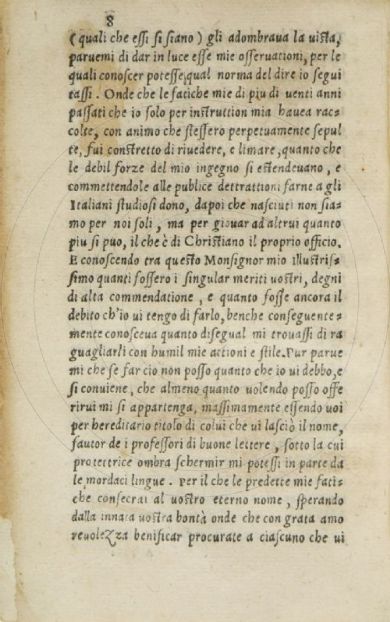 8
(quali che essi si siano) gli adombraua la uista,
paruemi di dar in luce esse mie osseruationi, per le
quali conoscer potesse, qual norma del dire io segui
tassi. Onde che le fatiche mie di piu di uenti anni
passati che io solo per instruttion mia hauea rac=
colte, con animo che stessero perpetuamente sepul
te, fui constretto di riuedere, e limare, quanto che
le debil forze del mio ingegno si estendeuano, e
commettendole alle publice dettrattioni farne a gli
Italiani studiosi dono, dapoi che nasciuti non sia=
mo per noi soli, ma per giouar ad altrui quanto
piu si puo, il che è di Christiano il proprio officio.
E conoscendo tra questo Monsignor mio illustris=
simo quanti fossero i singular meriti uostri, degni
di alta commendatione, e quanto fosse ancora il
debito ch'io ui tengo di farlo, benche conseguente=
mente conosceua quanto disegual mi trouassi di ra
guagliarli con humil mie actioni e stile. Pur parue
mi che se far cio non posso quanto che io ui debbo, e
si conuiene, che almeno quanto uolendo posso offe
rirui mi si appartenga, massimamente essendo uoi
per hereditario titolo di colui che ui lasciò il nome,
fautor de i professori di buone lettere, sotto la cui
protettrice ombra schermir mi potessi in parte da
le mordaci lingue. Per il che le predette mie fati=
che consecrai al uostro eterno nome, sperando
dalla innata uostra bontà onde che con grata amo
reuolezza benificar procurate a ciascuno che ui